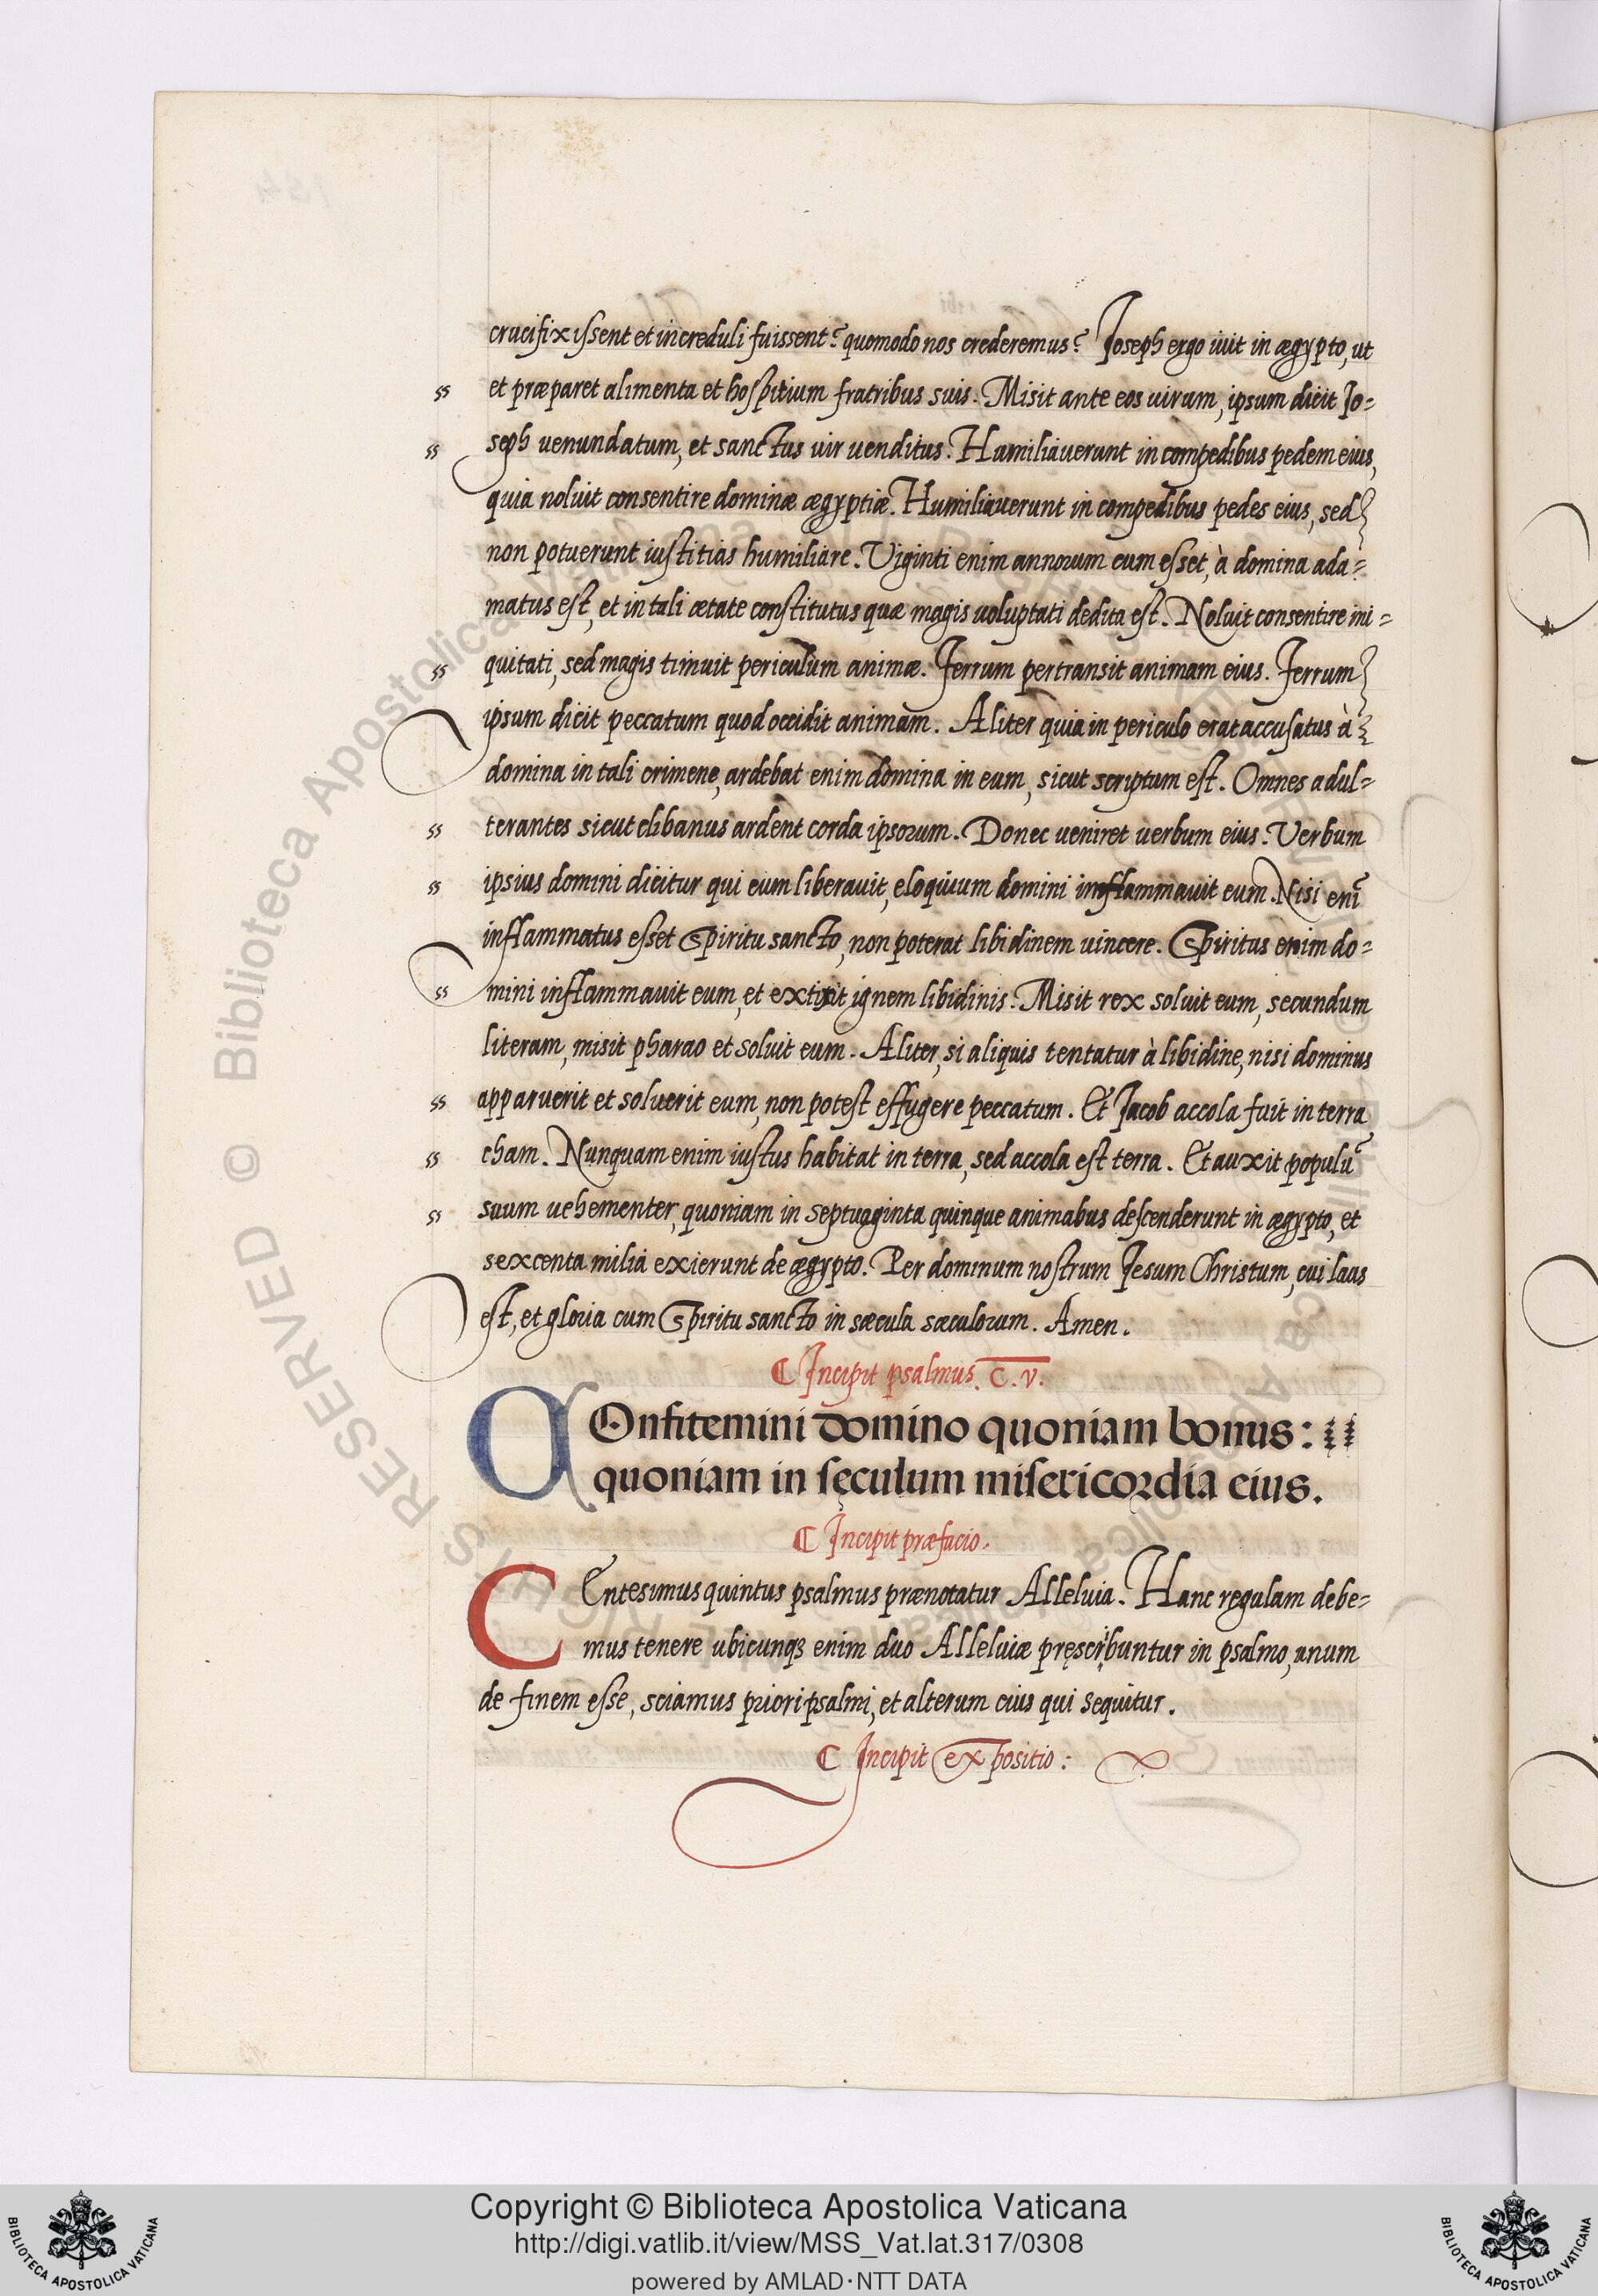 crucifixissent et increduli fuissent? quomodo nos crederemus? Joseph ergo iuit in ægypto, ut
ss et præparet alimenta et hospitium fratribus suis. Misit ante eos uirum, ipsum dicit Jo=
ss seph uenundatum, et sanctus uir uenditus. Humiliauerunt in compedibus pedem eius,
quia noluit consentire dominæ ægyptiæ. Humiliauerunt in compedibus pedes eius, sed
non potuerunt iustitias humiliare. Viginti enim annorum cum esset, à domina ada=
matus est, et in tali ætate constitutus quæ magis uoluptati dedita est. Noluit consentire ini=
ss quitati, sed magis timuit periculum animæ. Ferrum pertransit animam eius. Ferrum
ipsum dicit peccatum quod occidit animam. Aliter quia in periculo erat accusatus à
domina in tali crimene, ardebat enim domina in eum, sicut scriptum est. Omnes adul=
ss terantes sicut clibanus ardent corda ipsorum. Donec ueniret uerbum eius. Verbum
ss ipsius domini dicitur qui eum liberauit, eloquium domini inflammauit eum. Nisi eni̅
inflammatus esset Spiritu sancto, non poterat libidinem uincere. Spiritus enim do=
ss mini inflammauit eum, et extixit ignem libidinis. Misit rex soluit eum, secundum
literam, misit pharao et soluit eum. Aliter, si aliquis tentatur à libidine, nisi dominus
ss apparuerit et soluerit eum, non potest effugere peccatum. Et Jacob accola fuit in terra
ss cham. Nunquam enim iustus habitat in terra, sed accola est terra. Et auxit populu̅
ss suum uehementer, quoniam in septuaginta quinque animabus descenderunt in ægypto, et
sexcenta milia exierunt de ægypto. Per dominum nostrum Jesum Christum, cui laus
est, et gloria cum Spiritu sancto in sæcula sæculorum. Amen.
Incipit psalmus. C.V.
COnfitemini domino quoniam bonus:
quoniam in sęculum misericordia eius.
Incipit præfacio.
CEntesimus quintus psalmus prænotatur Alleluia. Hanc regulam debe=
mus tenere ubicunqꝫ enim duo Alleluiæ pręscribuntur in psalmo, unum
de finem esse, sciamus priori psalmi, et alterum eius qui sequitur.
Incipit expositio:
© Biblioteca Apostolica Vaticana
RESERVED
Copyright © Biblioteca Apostolica Vaticana
http://digi.vatlib.it/view/MSS_Vat.lat.317/0308
powered by AMLAD·NTT DATA
BIBLIOTECA APOSTOLICA VATICANA
BIBLIOTECA APOSTOLICA VATICANA